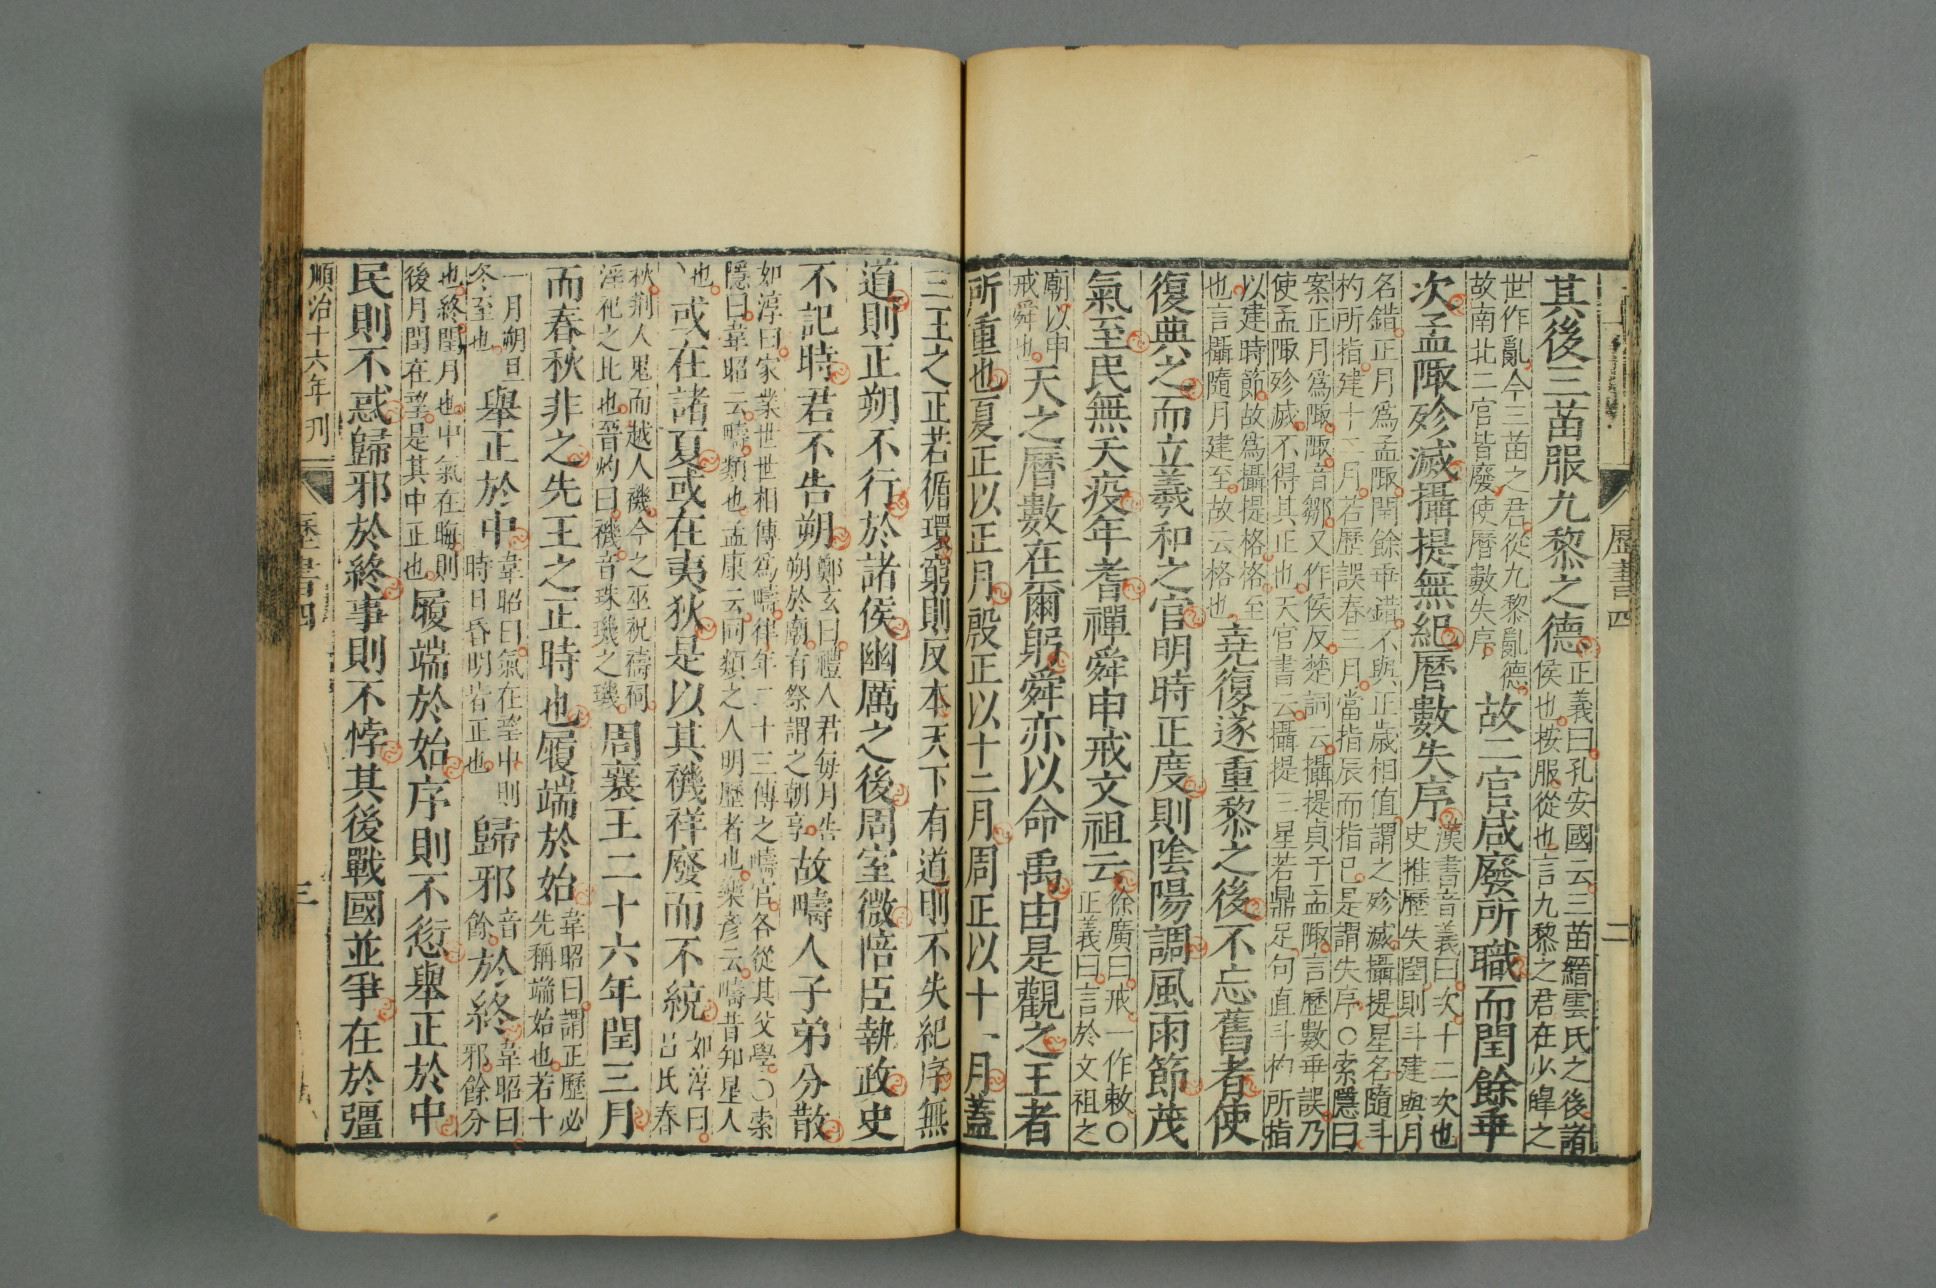 歷書四
二
其後三苗服九黎之德正義曰孔安國云三苗縉雲氏之後諸侯也按服從也言九黎之君在少皡之
世作亂今三苗之君從九黎亂德故南北二官皆廢使曆數失序故二官咸廢所職而閏餘乖
次孟陬殄滅攝提無紀曆數失序漢書音義曰次十二次也史推歷失閏則斗建與月
名錯正月爲孟陬閏餘乖錯不與正歲相值謂之殄滅攝提星名隨斗
杓所指建十二月若歷誤春三月當指辰而指巳是謂失序○索隱曰
案正月爲陬陬音鄒又作侯反楚詞云攝提貞于孟陬言歷數乖誤乃
使孟陬殄滅不得其正也天官書云攝提三星若鼎足句直斗杓所指
以建時節故爲攝提格格至也言攝隨月建至故云格也堯復遂重黎之後不忘舊者使
復典之而立羲和之官明時正度則陰陽調風雨節茂
氣至民無夭疫年耆禪舜申戒文祖云徐廣曰戒一作敕○正義曰言於文祖之
廟以申戒舜也天之曆數在爾躬舜亦以命禹由是觀之王者
所重也夏正以正月殷正以十二月周正以十一月蓋
三王之正若循環窮則反本天下有道則不失紀序無
道則正朔不行於諸侯幽厲之後周室微陪臣執政史
不記時君不告朔鄭玄曰禮人君每月告朔於廟有祭謂之朝享故疇人子弟分散
如淳曰家業世世相傳爲疇律年二十三傳之疇官各從其父學○索
隱曰韋昭云疇類也孟康云同類之人明歷者也樂彥云疇昔知星人
也或在諸夏或在夷狄是以其禨祥廢而不統如淳曰呂氏春
秋荆人鬼而越人禨今之巫祝禱祠淫祀之比也晉灼曰禨音珠璣之璣周襄王二十六年閏三月
而春秋非之先王之正時也履端於始韋昭曰謂正歷必先稱端始也若十
一月朔旦冬至也舉正於中韋昭曰氣在望中則時日昏明皆正也歸邪音餘於終韋昭曰邪餘分
也終閏月也中氣在晦則後月閏在望是其中正也履端於始序則不愆舉正於中
民則不惑歸邪於終事則不悖其後戰國並爭在於彊
順治十六年刊
歷書四
三